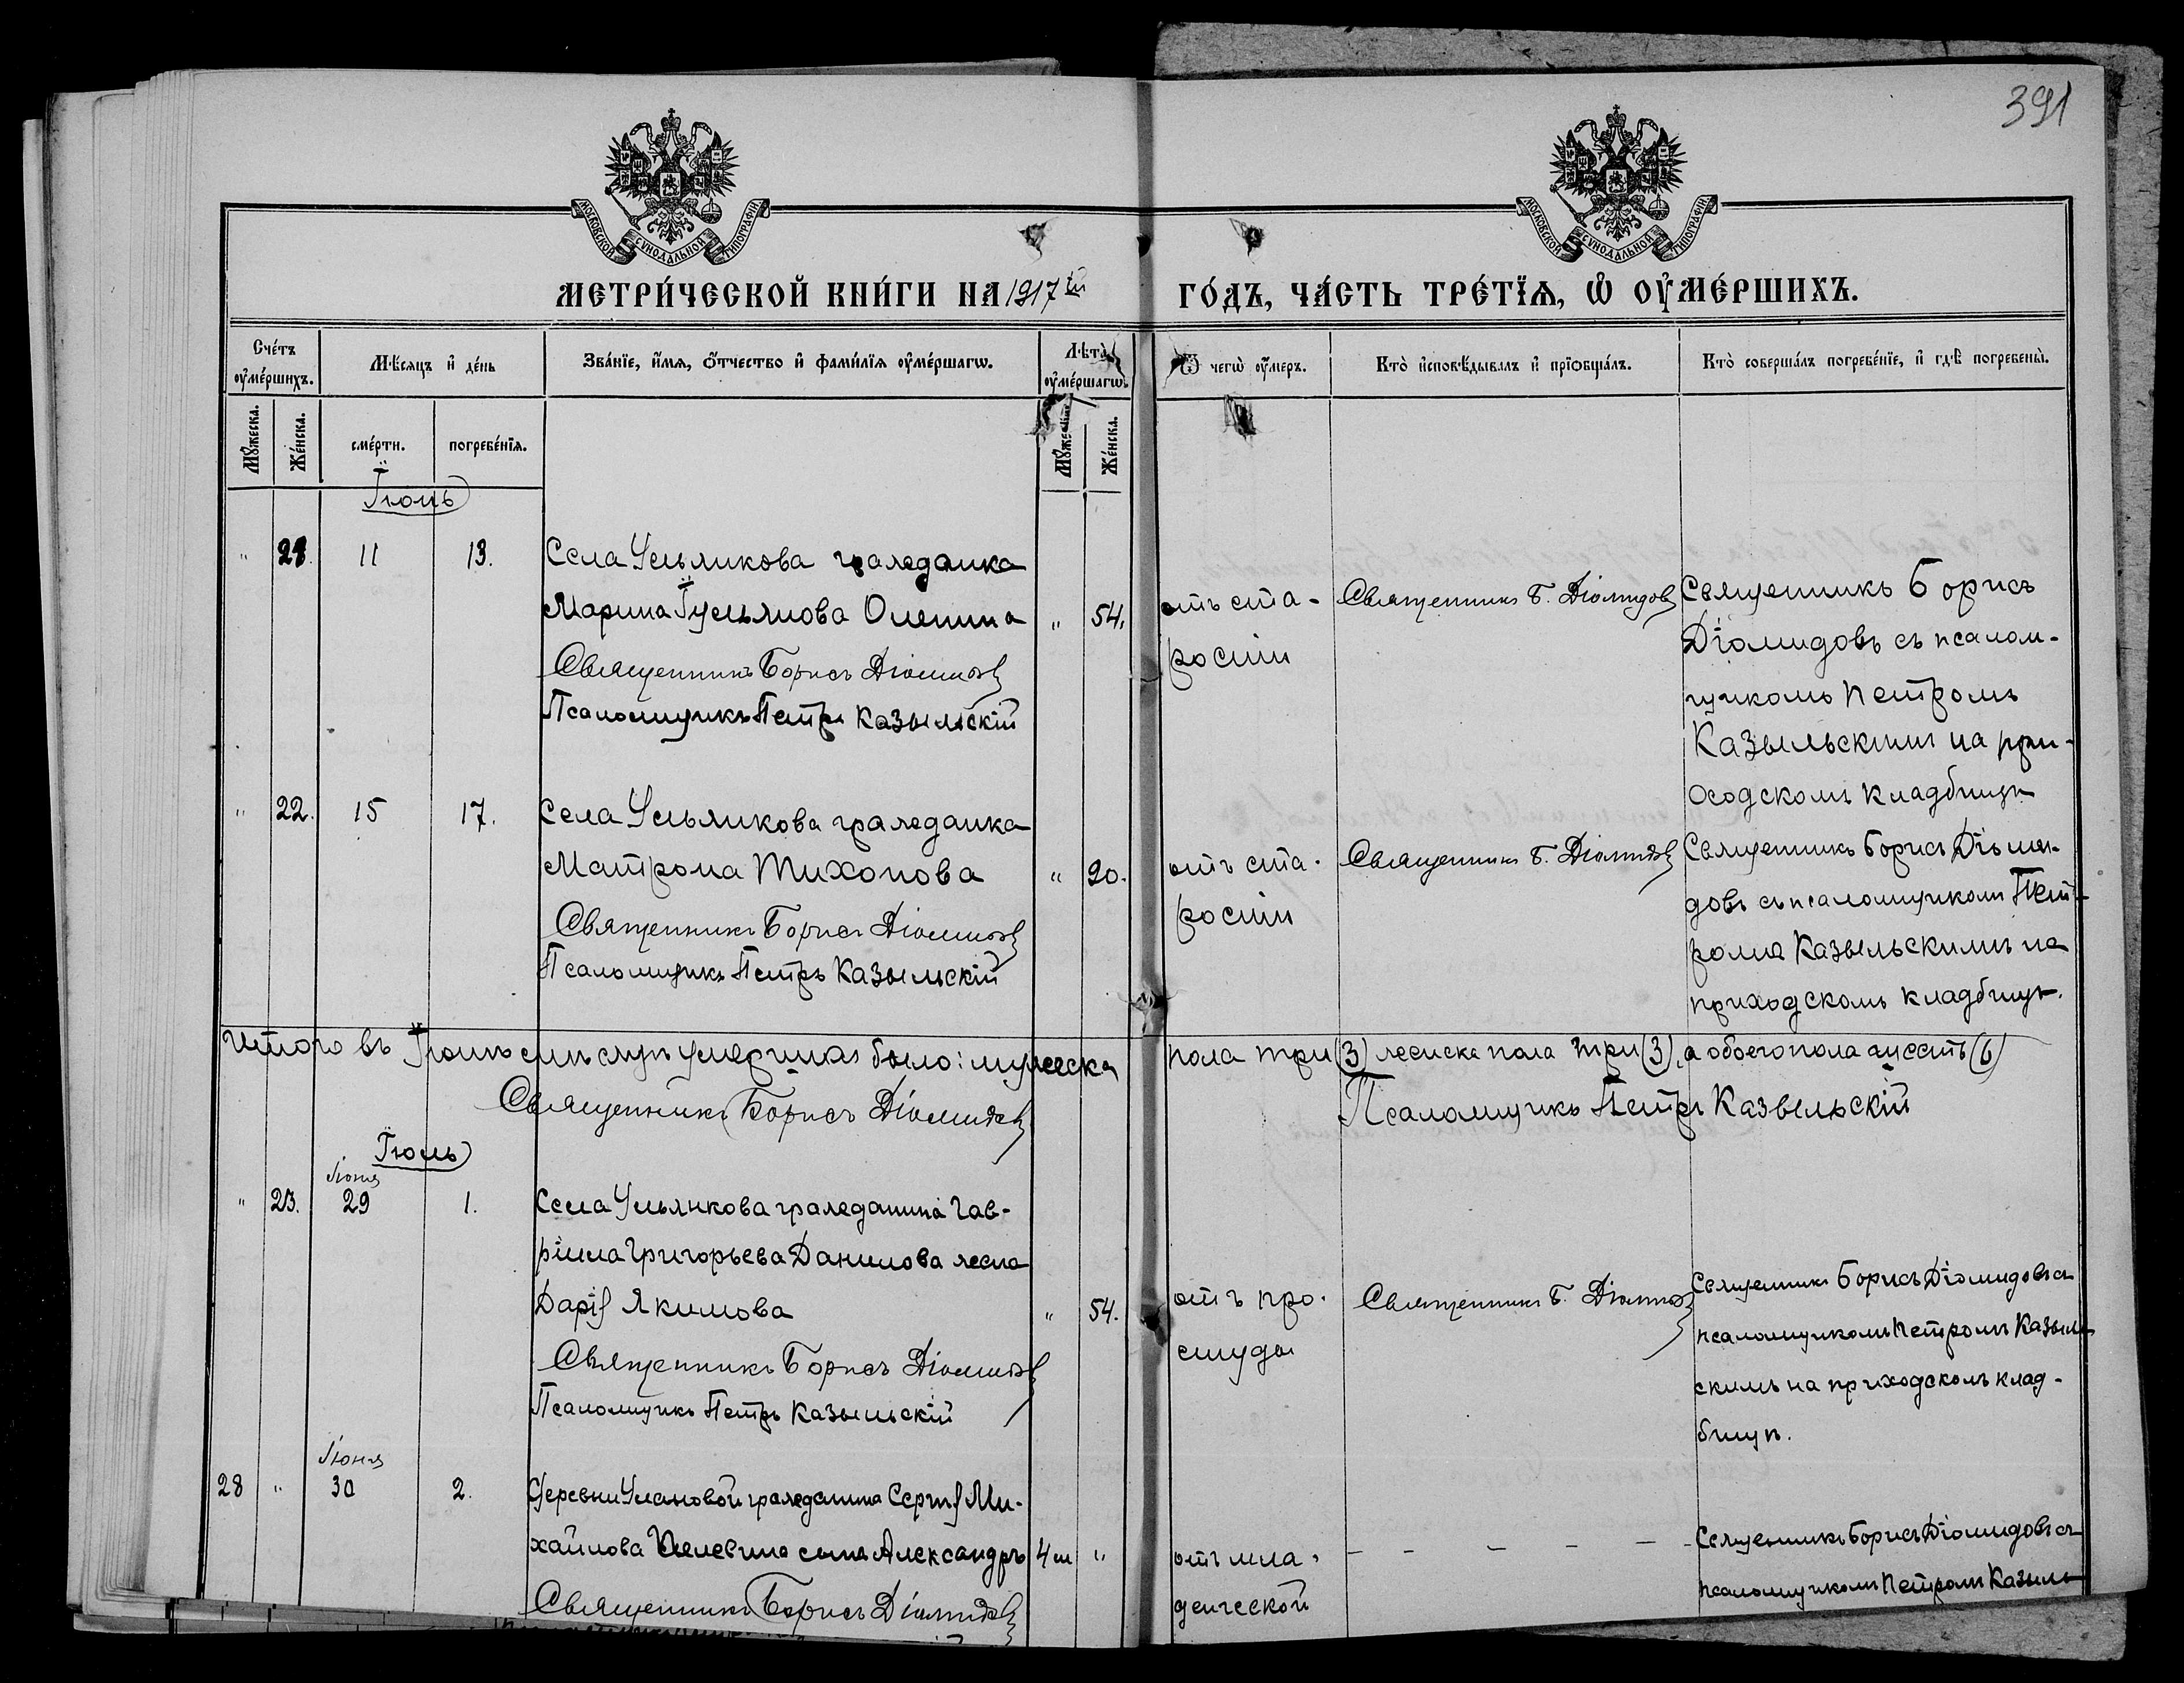 391
МОСКОВСКОЙ СѴНОДАЛЬНОЙ ТИПОГРАФІИ
МОСКОВСКОЙ СѴНОДАЛЬНОЙ ТИПОГРАФІИ
МЕТРИ́ЧЕСКОЙ КНИ́ГИ НА 1917й ГО́ДЪ, ЧА́СТЬ ТРЕ́ТЇѦ, Ѽ ОУМЕ́РШИХЪ.
Сче́тъ оумершихъ.
Мѣсяцъ и день
Зва́нїе, и́мя, о́тчество и фами́лїя оуме́ршагѡ.
Лѣта̀ оуме́ршагѡ.
Ѿ чегѡ̀ оу́меръ.
Кто̀ исповѣ́дывалъ и прїобща́лъ.
Кто̀ соверша́лъ погребе́нїе, и гдѣ̀ погребены̀.
Мꙋ́жеска.
Же́нска.
сме́рти.
погребе́нїя.
Мꙋ́жеска.
Же́нска.
Іюнь
" 21. 11 13. Села Ульянкова гражданка
Марина Іульянова Оленина " 54.
Священникъ Борисъ Діомидовъ
Псаломщикъ Петръ Казыльскій
отъ ста-
рости
Священникъ Б. Діомидовъ
Священникъ Борисъ
Діомидовъ съ псалом-
щикомъ Петромъ
Казыльскимъ на при-
ходскомъ кладбищѣ
" 22. 15 17. Села Ульянкова гражданка
Матрона Тихонова " 90.
Священникъ Борисъ Діомидовъ
Псаломщикъ Петръ Казыльскій
отъ ста-
рости
Священникъ Б. Діомидовъ
Священникъ Борисъ Діоми-
довъ съ псаломщикомъ Пет-
ромъ Казыльскимъ на
приходскомъ кладбищѣ.
Итого въ Іюнѣ мѣсяцѣ умершихъ было: мужеска пола три (3) женска пола три (3), а обоего пола шесть (6)
Священникъ Борисъ Діомидовъ Псаломщикъ Петръ Казыльскій
Іюль
Іюня
" 23. 29 1. Села Ульянкова гражданина Гав-
ріила Григорьева Данилова жена
Дарія Якимова " 54.
Священникъ Борисъ Діомидовъ
Псаломщикъ Петръ Казыльскій
отъ про-
студы
Священникъ Б. Діомидовъ
Священникъ Борисъ Діомидовъ съ
псаломщикомъ Петромъ Казыль-
скимъ на приходскомъ клад-
бищѣ.
Іюня
28 " 30 2. Деревни Улановой гражданина Сергія Ми-
хайлова сынъ Александръ 4 м "
Священникъ Борисъ Діомидовъ
отъ мла-
денческой
- - - - -
Священникъ Борисъ Діомидовъ съ
псаломщикомъ Петромъ Казыль-